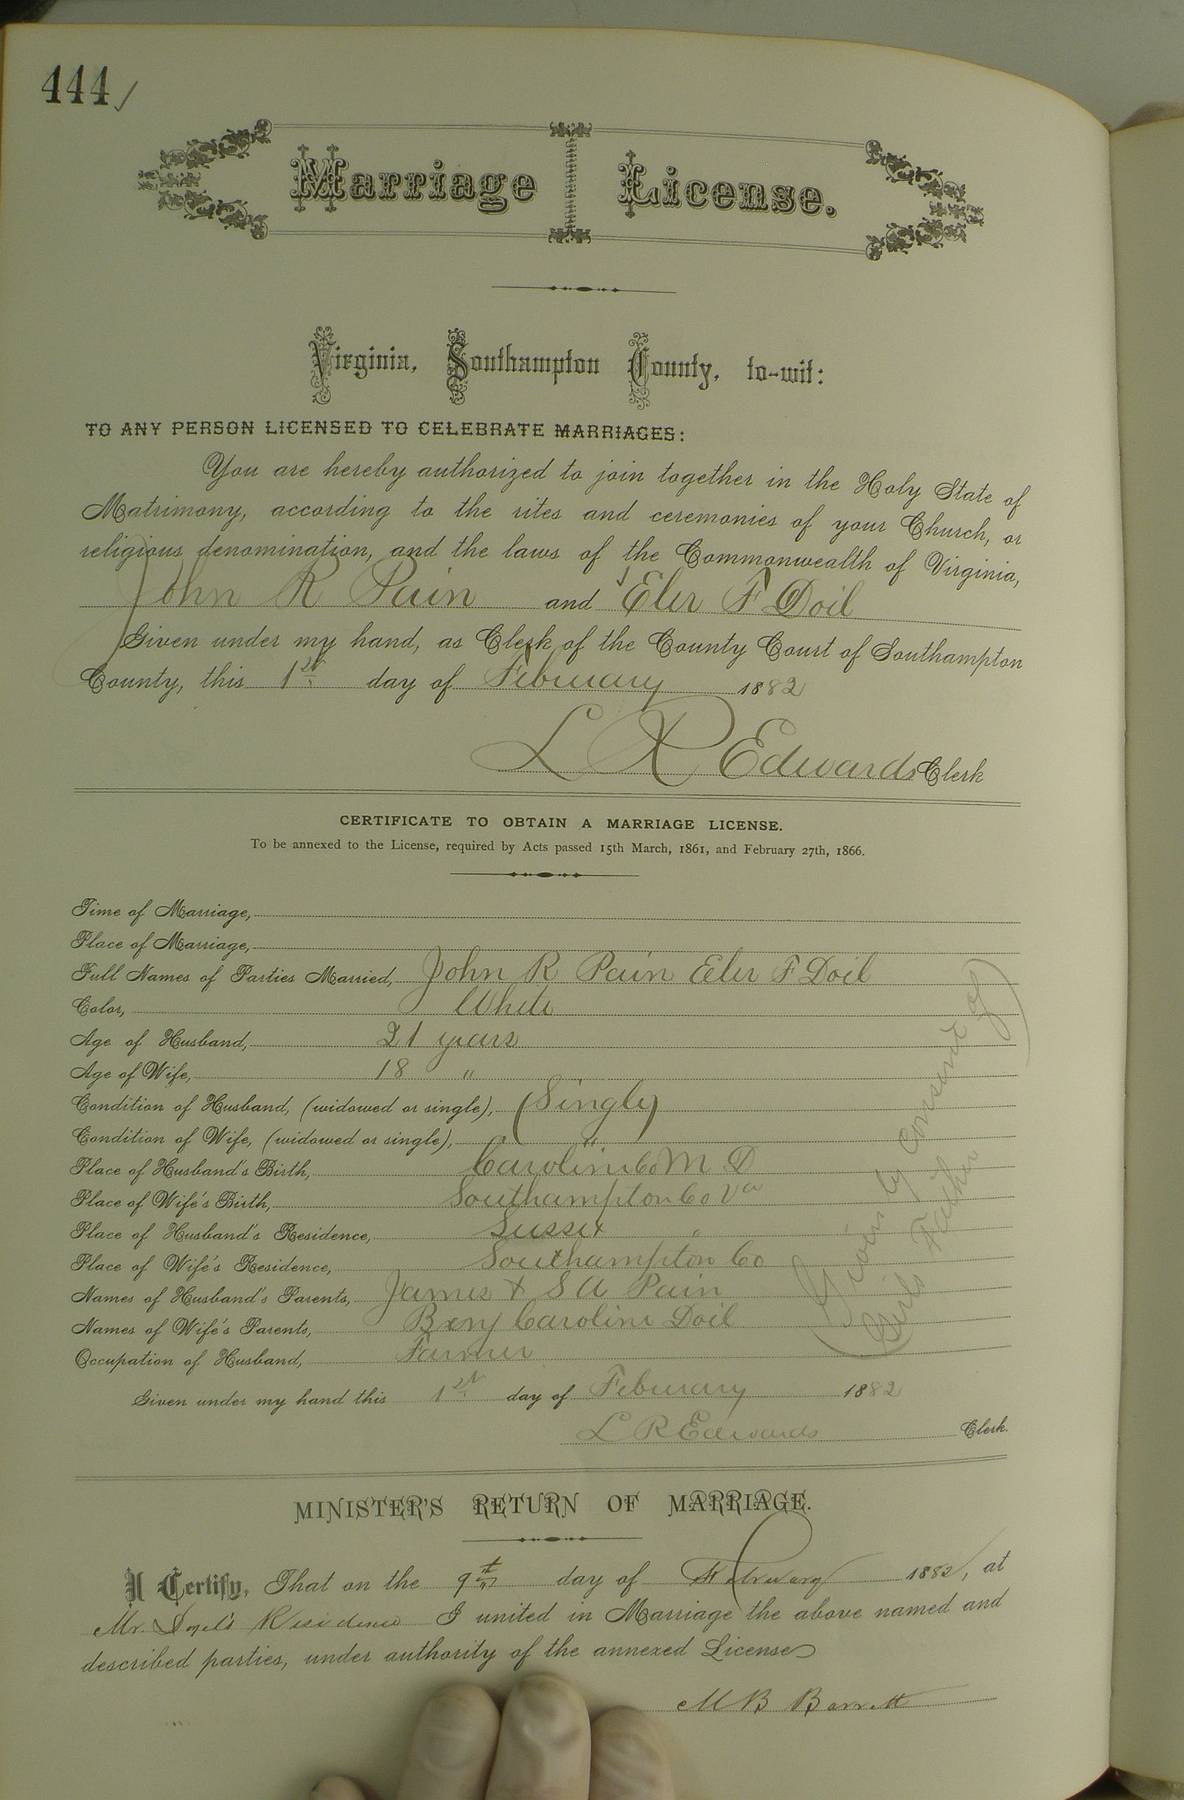 444
Marriage License.
Virginia, Southampton County, to-wit:
TO ANY PERSON LICENSED TO CELEBRATE MARRIAGES:
You are hereby authorized to join together in the Holy State of
Matrimony, according to the rites and ceremonies of your Church, or
religious denomination, and the laws of the Commonwealth of Virginia,
John R Pain and Eler F Doil
Given under my hand, as Clerk of the County Court of Southampton
County, this 1st day of February 1882
L R Edwards Clerk
CERTIFICATE TO OBTAIN A MARRIAGE LICENSE.
To be annexed to the License, required by Acts passed 15th March, 1861, and February 27th, 1866.
Time of Marriage,
Place of Marriage,
Full Names of Parties Married, John R Pain Eler F Doil
Color, White
Age of Husband, 21 years
Age of Wife, 18 "
Condition of Husband, (widowed or single), (Singly)
Condition of Wife, (widowed or single), "
Place of Husband's Birth, Caroline Co M D
Place of Wife's Birth, Southampton Co Va
Place of Husband's Residence, Sussex "
Place of Wife's Residence, Southampton Co
Names of Husband's Parents, James & S A Pain
Names of Wife's Parents, Benj Caroline Doil
Occupation of Husband, Farmer
(Givin by Consent of
Girls Father)
Given under my hand this 1st day of February 1882
L R Edwards Clerk.
MINISTER'S RETURN OF MARRIAGE.
I Certify, That on the 9th day of February 1882, at
Mr. Doyel's Residence I united in Marriage the above named and
described parties, under authority of the annexed License
M B Barrett